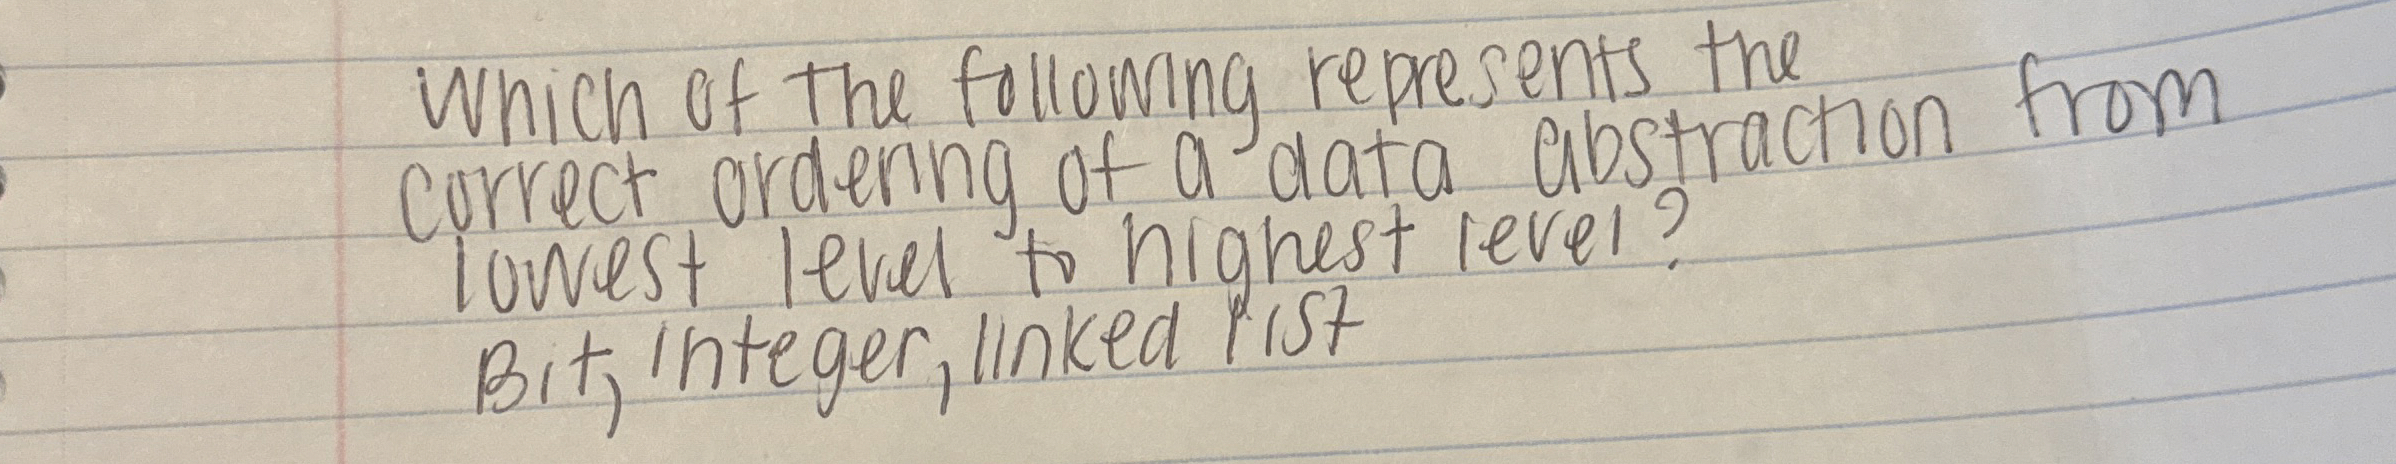 Which of the following represents the
correct ordering of a data abstraction from
lowest level to highest level?
Bit, integer, linked list